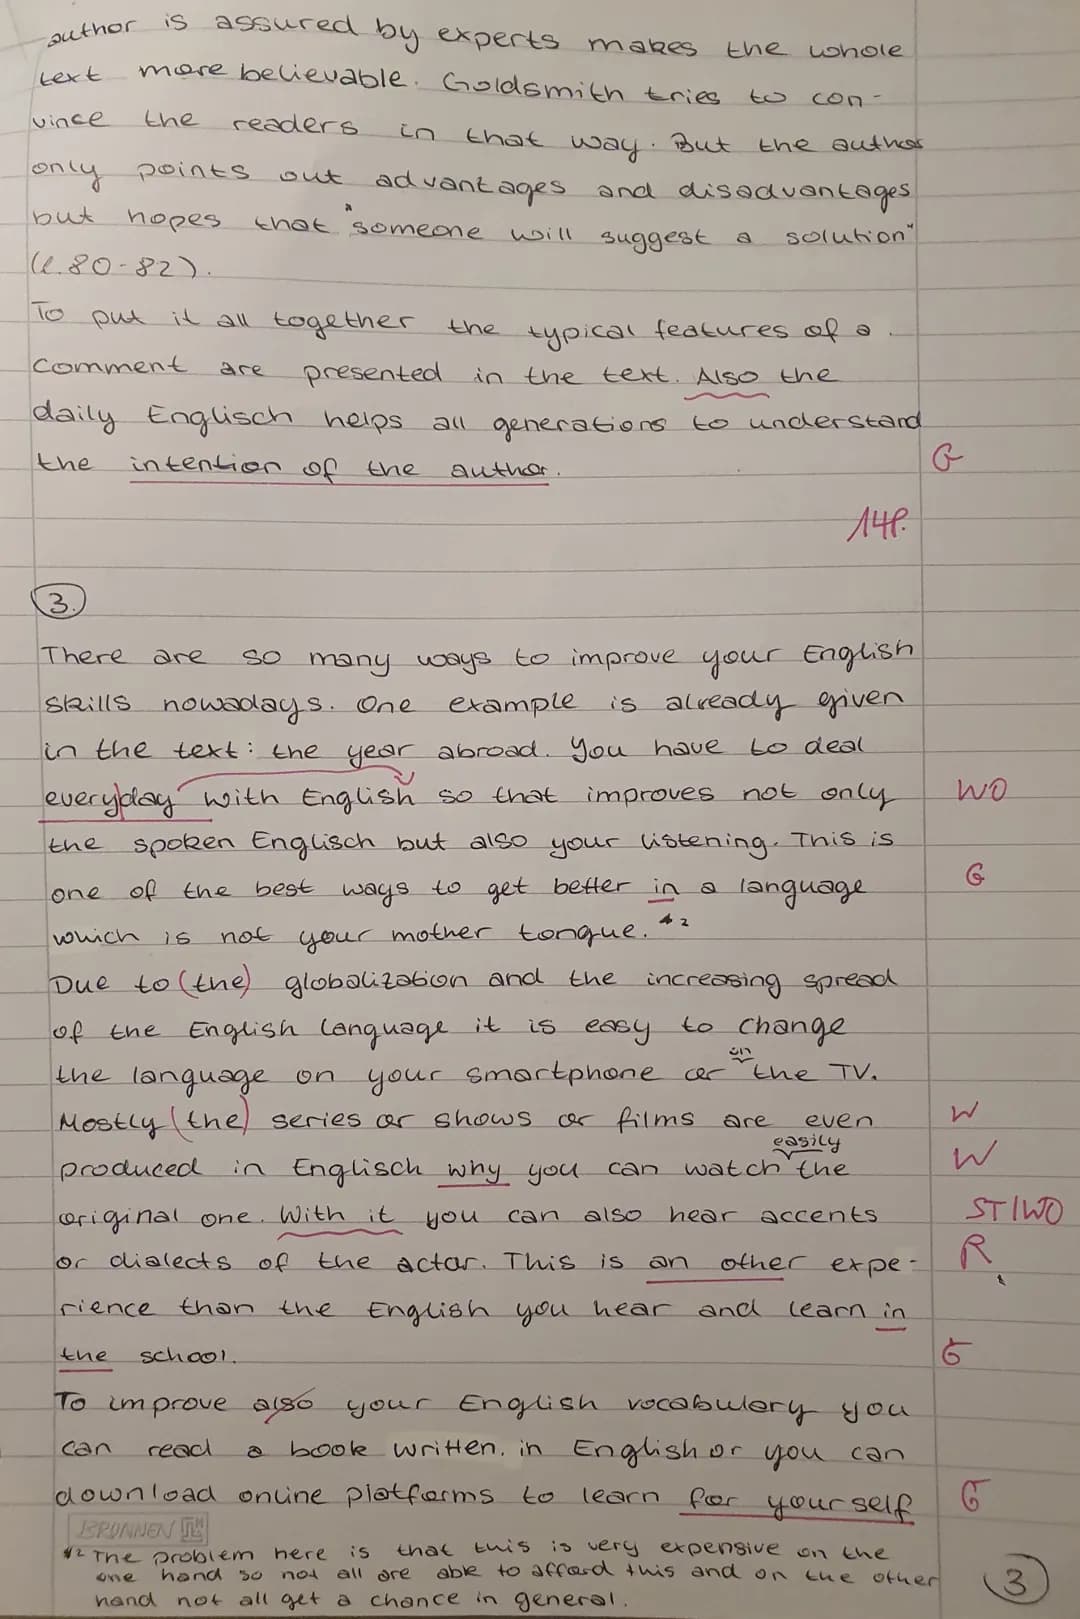 author is assured by experts makes the whole
text more believable. Goldsmith tries to con-
vince the readers in that way. But the author
only points out advantages and disadvantages
but hopes that "someone will suggest a solution"
(l. 80-82).
To put it all together the typical features of a
comment are presented in the text. Also the
daily Englisch helps all generations to understand
the intention of the author.
G
14P.
3.
There are so many ways to improve your English
skills nowadays. One example is already given
in the text: the year abroad. You have to deal
everyday with English so that improves not only
WO
the spoken Englisch but also your listening. This is
one of the best ways to get better in a language
G
which is not your mother tongue. *2
Due to (the) globalization and the increasing spread
of the English language it is easy to change
the language on your smartphone or on the TV.
Mostly (the) series or shows or films are even
W
produced in Englisch why you can watch easily the
W
original one. With it you can also hear accents
ST/WO
or dialects of the actor. This is an other expe-
R
rience than the English you hear and learn in
the school.
G
To improve also your English vocabulary you
can read a book written in English or you can
download online platforms to learn for yourself
G
BRUNNEN
*2 The problem here is that this is very expensive on the
one hand so not all are able to afford this and on the other
hand not all get a chance in general.
3